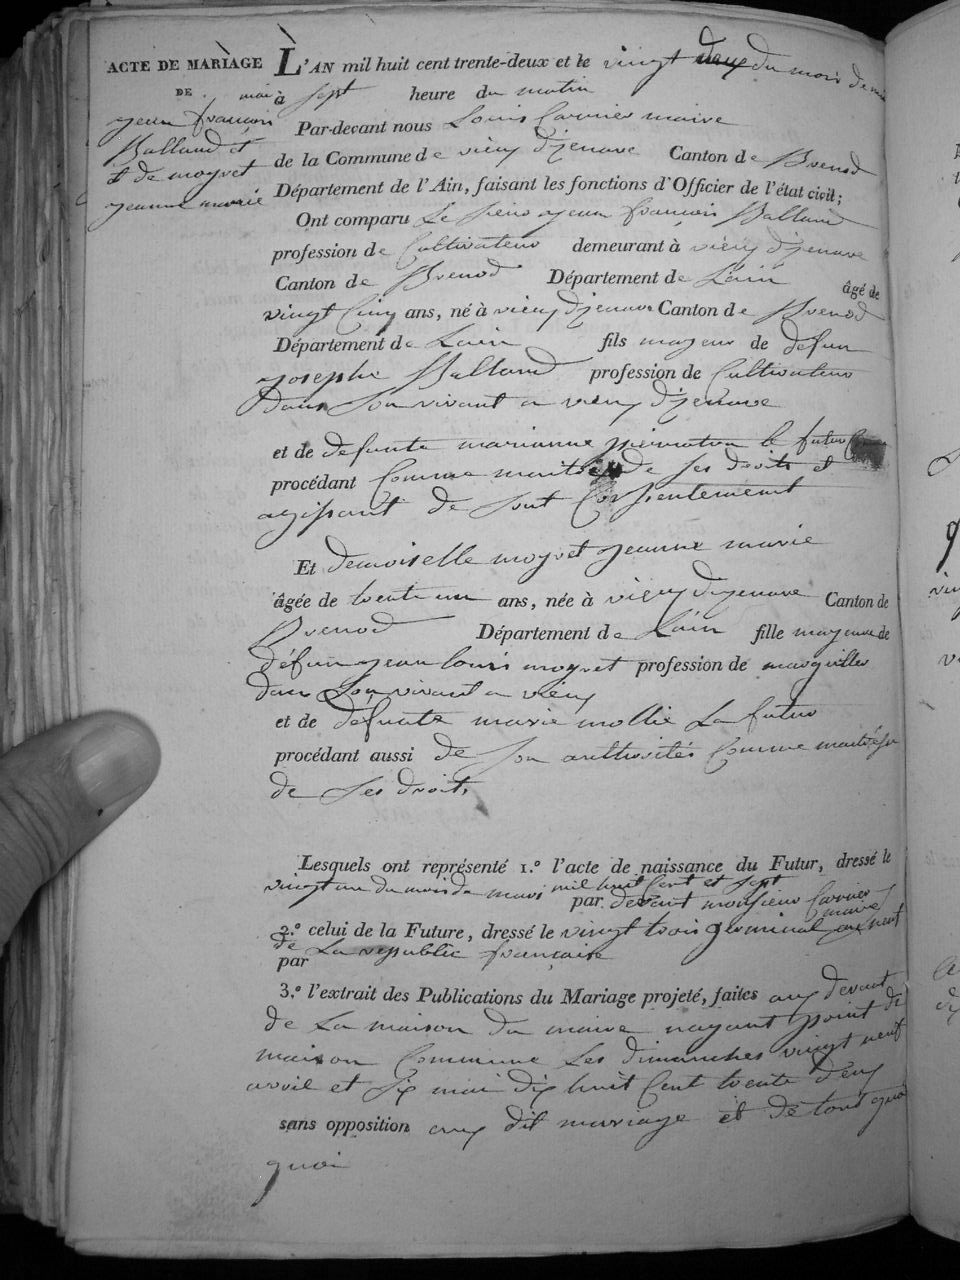 ACTE DE MARIAGE
DE
jean françois
Balland et
et de moyret
jeanne marie
L'AN mil huit cent trente-deux et le vingt deux du mois de
mai à sept heure du matin
Par-devant nous Louis Carrier maire
de la Commune de vieu d'izenave Canton de Brenod
Département de l'Ain, faisant les fonctions d'Officier de l'état civil;
Ont comparu Le sieur jean françois Balland
profession de Cultivateur demeurant à vieu dizenave
Canton de Brenod Département de Lain âgé de
vingt Cinq ans, né à vieu dizenave Canton de Brenod
Département de Lain fils majeur de défun
josephe Balland profession de Cultivateur
dans son vivant a vieu dizenave
et de defunte marianne le futur
procédant Comme maitre de ses droits et
agissant de sont Consentement
Et demoiselle moyret jeanne marie
âgée de trente un ans, née à vieu dizenave Canton de
Brenod Département de Lain fille majeure de
défun jean louis moyret profession de marguillier
dans son vivant a vieu
et de défunte marie mollie La futur
procédant aussi de son authorités Comme maitresse
de ses droits
Lesquels ont représenté 1.° l'acte de naissance du Futur, dressé le
vingt un du mois de mars mil huit Cent et sept
par devant monsieur Carrier
maire
2.° celui de la Future, dressé le vingt trois germinal an neuf
de La republic française
par
3.° l'extrait des Publications du Mariage projeté, faites au devant
de La maison du maire nayant point de
maison Commune Les dimanches vingt neuf
avril et six mai dix huit Cent trente deux
sans opposition au dit mariage et de tout quoi
quoi